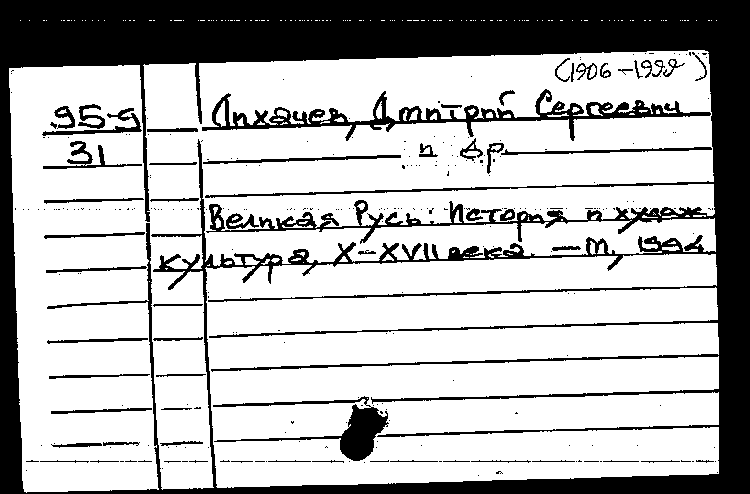 (1906-1999)
95-9 Лихачев, Дмитрий Сергеевич
31 и др.
Великая Русь: История и худож.
культура, X-XVII века. - М., 1994